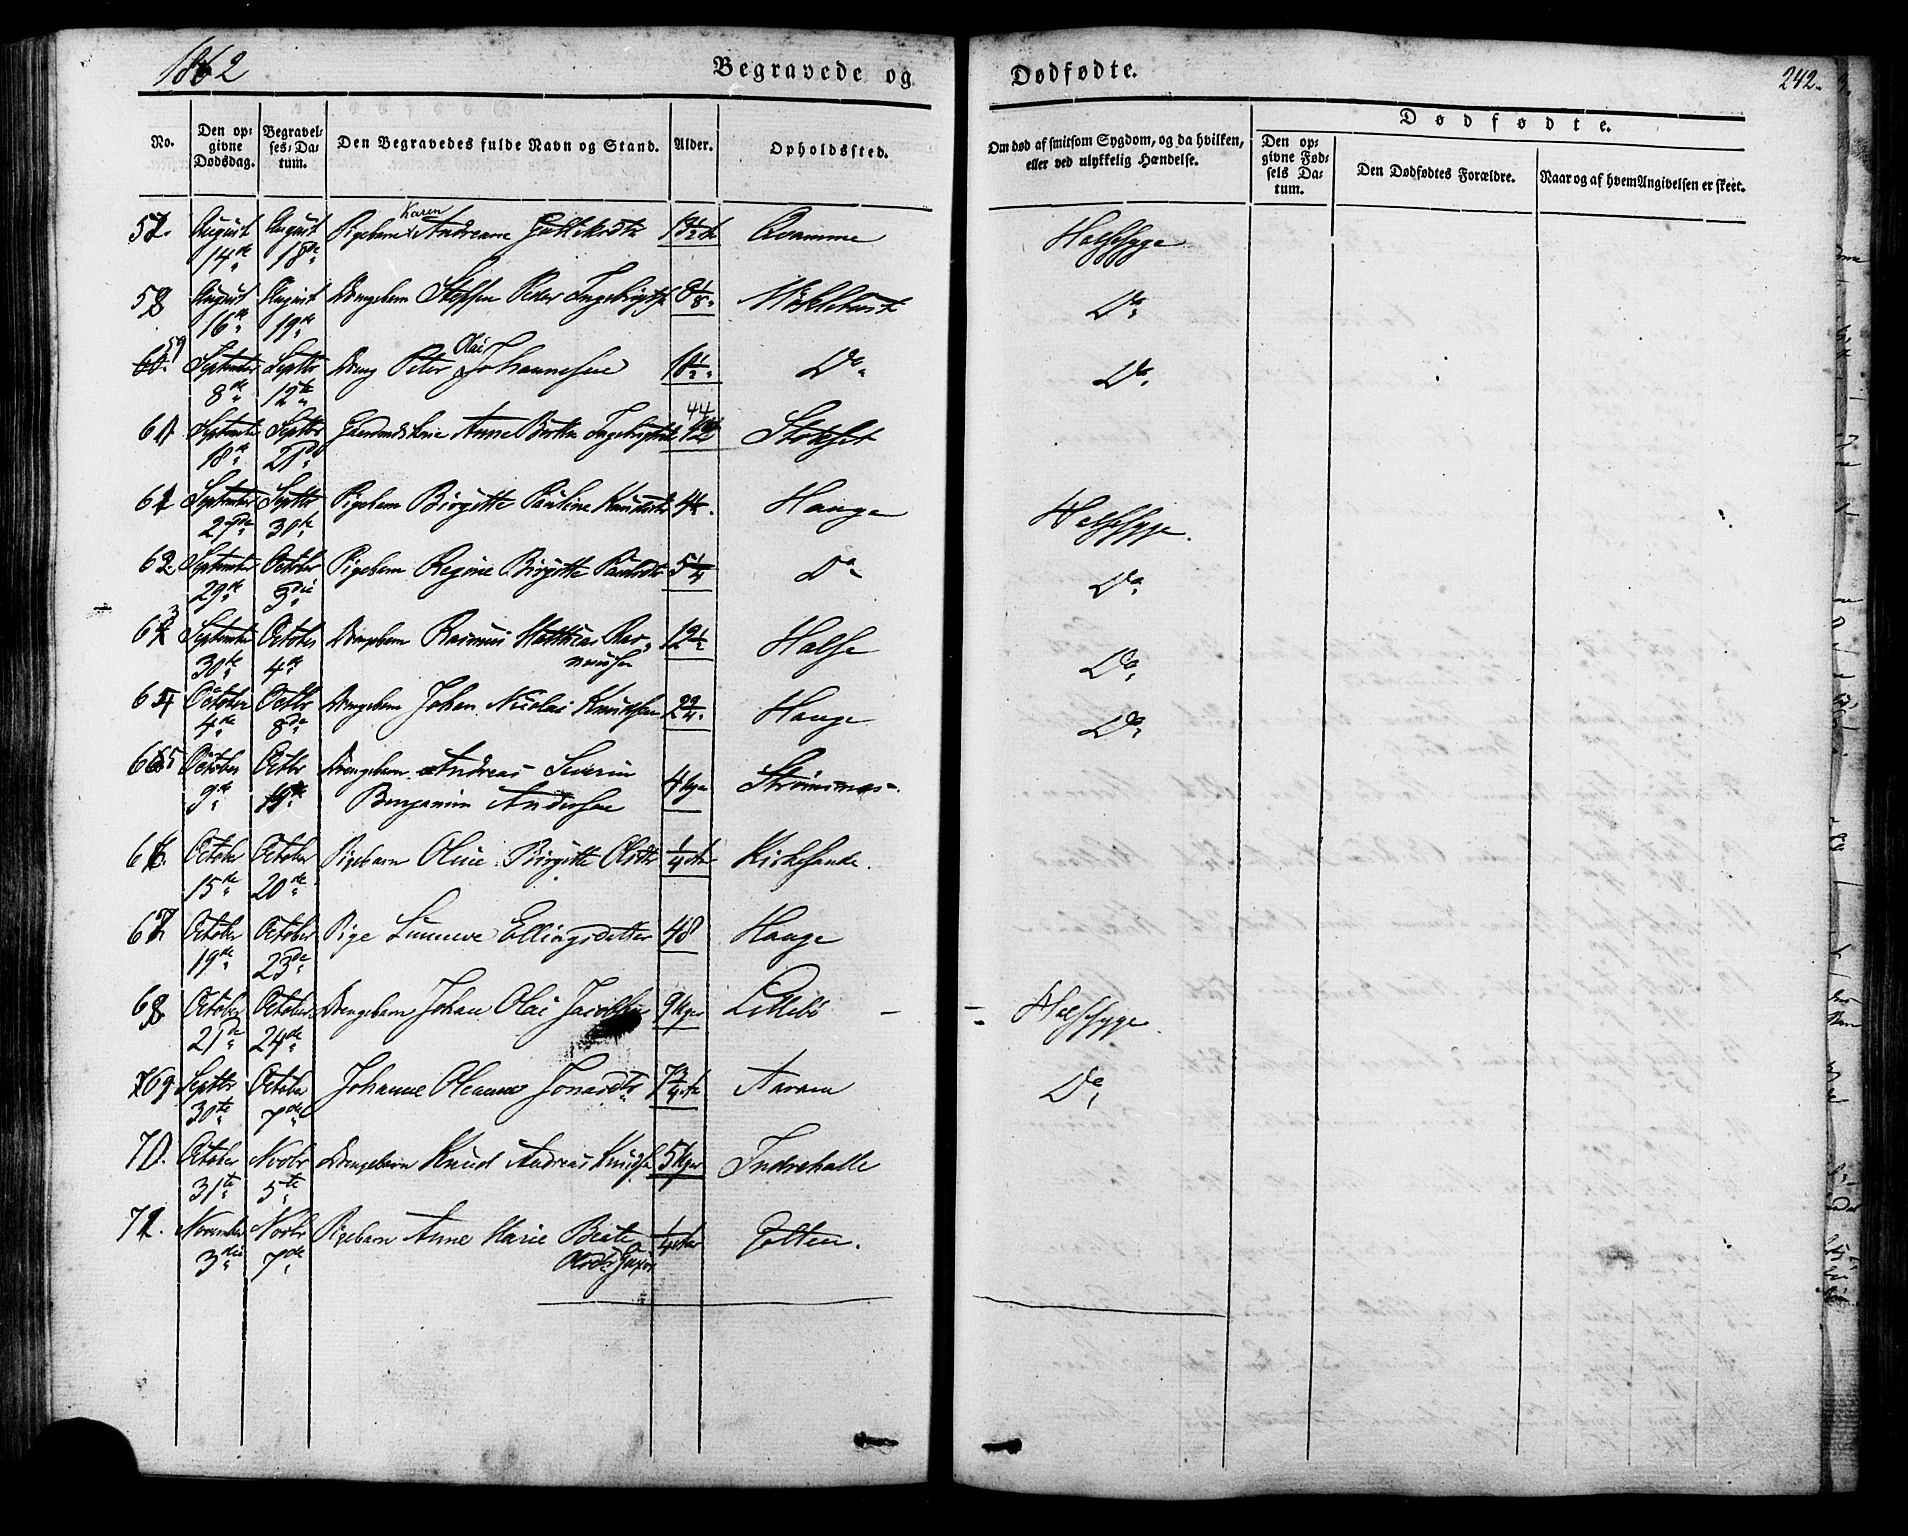 1862
Begravede og
Dødfødte.
242.
No.
Den opgivne Dødsdag.
Begravelses-Datum.
Den Begravedes fulde Navn og Stand.
Alder.
Opholdssted.
Om død af smitsom Sygdom, og da hvilken, eller ved ulykkelig Hændelse.
Dødfødte.
Den opgivne Fødsels Datum.
Den Dødfødtes Forældre.
Naar og af hvem Angivelsen er skeet.
57. August 14de August 18de Pigebarn Karen Andreane Qvamme Halssyge
58 August 16de August 19de Drengebarn Steffen Peder Ingebrigts Miklebust Do
59 September 8de Septbr 12te Dreng Peter Olai Johannesen Do Do
60 September 18de Septbr 21de Anne Berthe 44 Stokset
61 September 27de Septbr 30te Pigebarn Birgitte Pauline Knudsdtr Hauge Halssyge.
62 September 29de October 3die Pigebarn Regine Birgitte 5 1/4 Do Do
63 September 30te October 4de Drengebarn Rasmus Matthias Rasmussen Halse Do
64 October 4de Octbr 8de Drengebarn Johan Nicolai Knudsen 2 3/4 Hauge Do
65 October 9de Octbr Drengebarn Andreas Severin
Benjamin Andersen 4 Uger Strømsnæs
66. October 15de October 20de Pigebarn Oline Birgitte Olsdtr 1/4 Kirkesande.
67. October 19de October 23de Pige Sunneve Ellingsdatter 48 Hauge
68 October 21de October 24de Drengebarn Johan Olai 9 Uger Lillebø Halssyge.
69 Septbr 30te October 7de Johanne Oleanne Jonasdtr 7 3/4 Aaram Do
70. October 31te Novbr 5te Drengebarn Knud Andreas 5 Uger Indrehalle
71. November 3die Novbr 7de Pigebarn Anne Marie Beate 1/4